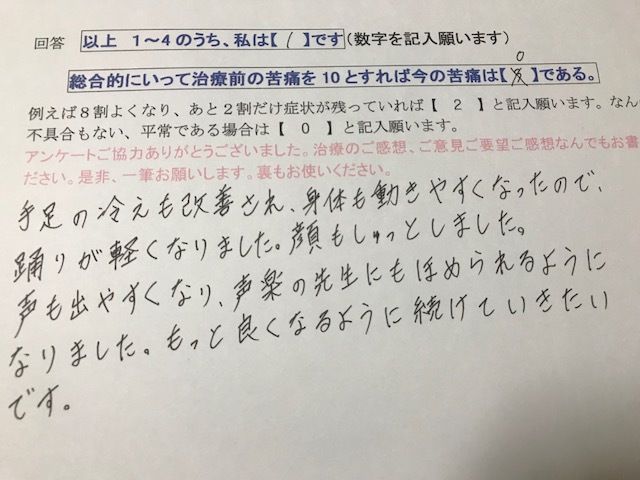 回答 以上 1～4のうち、私は【 1 】です(数字を記入願います)
0
総合的にいって治療前の苦痛を10とすれば今の苦痛は【 】である。
例えば8割よくなり、あと2割だけ症状が残っていれば【 2 】と記入願います。なん
不具合もない、平常である場合は【 0 】と記入願います。
アンケートご協力ありがとうございました。治療のご感想、ご意見ご要望ご感想なんでもお書
ださい。是非、一筆お願いします。裏もお使いください。
手足の冷えも改善され、身体も動きやすくなったので、
踊りが軽くなりました。顔もしゅっとしました。
声も出やすくなり、声楽の先生にもほめられるように
なりました。もっと良くなるように続けていきたい
です。